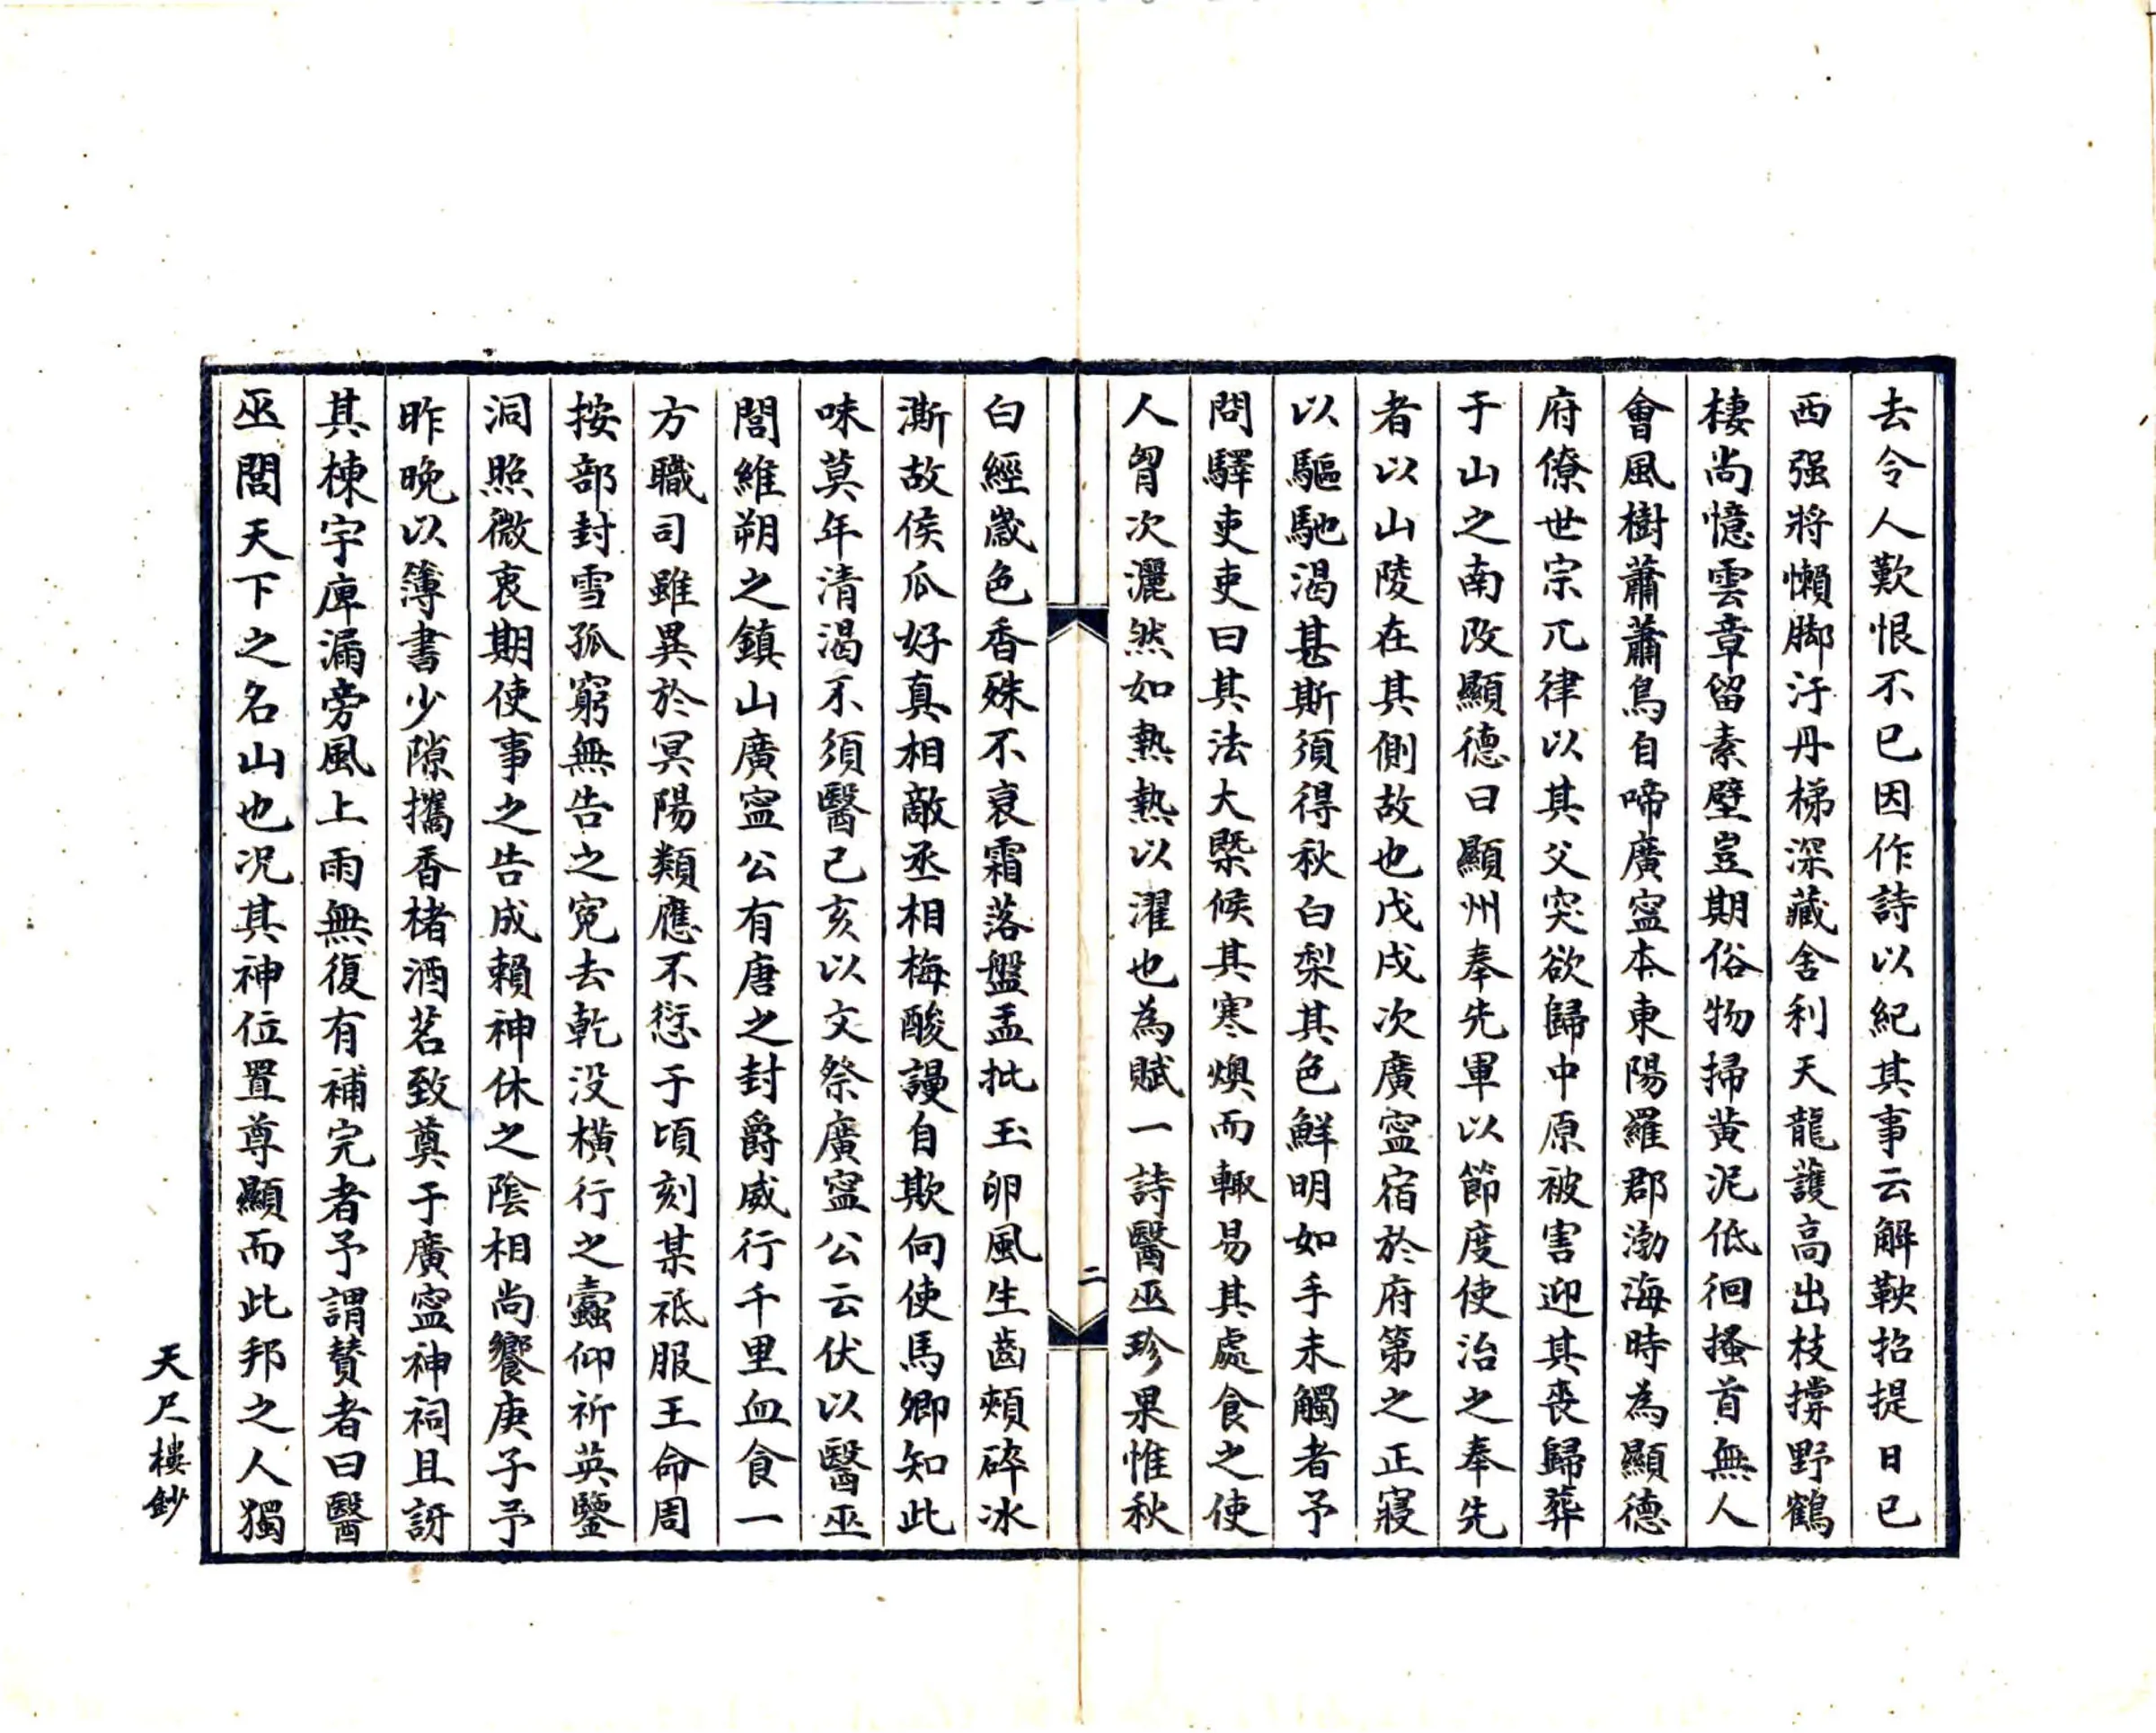 去令人歎恨不已因作詩以紀其事云解鞅招提日已
西强將懶脚汙丹梯深藏舍利天龍護高出枝撐野鶴
棲尚憶雲章留素壁豈期俗物掃黄泥低徊搔首無人
會風樹蕭蕭鳥自啼廣寍本東陽羅郡渤海時為顯德
府僚世宗兀律以其父突欲歸中原被害迎其喪歸葬
于山之南改顯德曰顯州奉先軍以節度使治之奉先
者以山陵在其側故也戊戌次廣寍宿於府第之正寢
以驅馳渴甚斯須得秋白梨其色鮮明如手未觸者予
問驛吏吏曰其法大槩候其寒燠而輙易其處食之使
人胷次灑然如熱熱以濯也為賦一詩醫巫珍果惟秋
白經歲色香殊不衰霜落盤盂批玉卵風生齒頰碎冰
澌故侯瓜好真相敵丞相梅酸謾自欺何使馬卿知此
味莫年清渴不須醫己亥以文祭廣寍公云伏以醫巫
閭維朔之鎮山廣寍公有唐之封爵威行千里血食一
方職司雖異於冥陽類應不愆于頃刻某祗服王命周
按部封雪孤窮無告之寃去乾没橫行之蠹仰祈英鑒
洞照微衷期使事之告成賴神休之陰相尚饗庚子予
昨晚以簿書少隙攜香楮酒茗致奠于廣寍神祠且訝
其棟宇庳漏旁風上雨無復有補完者予謂贊者曰醫
巫閭天下之名山也况其神位置尊顯而此邦之人獨
二
天尺樓鈔